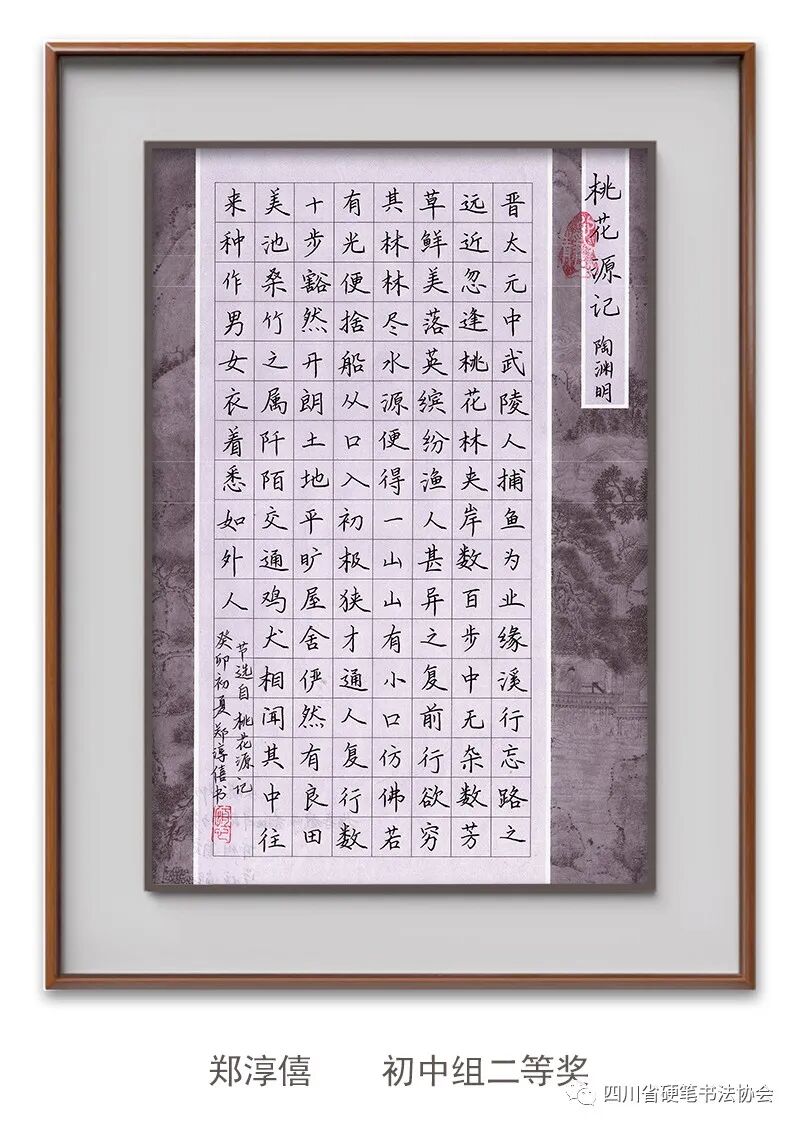 桃花源记 陶渊明
晋太元中武陵人捕鱼为业缘溪行忘路之
远近忽逢桃花林夹岸数百步中无杂数芳
草鲜美落英缤纷渔人甚异之复前行欲穷
其林林尽水源便得一山山有小口仿佛若
有光便捨船从口入初极狭才通人复行数
十步豁然开朗土地平旷屋舍俨然有良田
美池桑竹之属阡陌交通鸡犬相闻其中往
来种作男女衣着悉如外人
节选自桃花源记
癸卯初夏郑淳僖书
郑淳僖 初中组二等奖
四川省硬笔书法协会